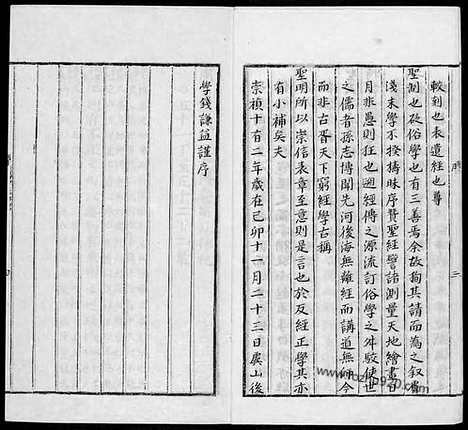 較刻也表遺經也尊
聖測也砭俗學也有三善焉余故狥其請而為之叙嗚
淺末學不揆擣昧序贊聖經譬諸測量天地繪畫日
月非愚則狂也遡經傳之源流訂俗學之舛駁使世
之儒者孫志博聞先河後海無離經而講道無師今
而非古胥天下窮經學古稱
聖明所以崇信表章至意則是言也於反經正學其亦
有小補矣夫
崇禎十有二年歲在己卯十一月二十三日虞山後
學錢謙益謹序
三